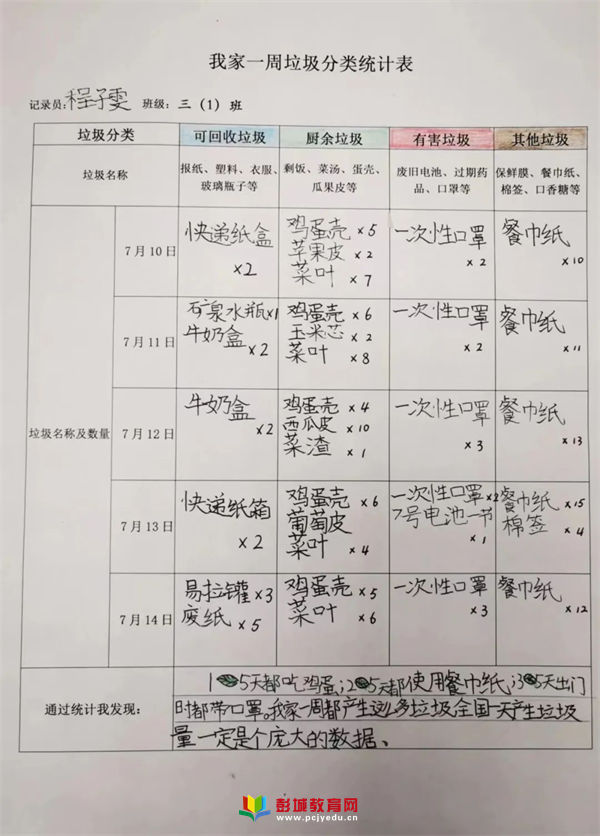 我家一周垃圾分类统计表
记录员:程子雯 班级:三(1)班
垃圾分类 可回收垃圾 厨余垃圾 有害垃圾 其他垃圾
垃圾名称
报纸、塑料、衣服、
玻璃瓶子等
剩饭、菜汤、蛋壳、
瓜果皮等
废旧电池、过期药
品、口罩等
保鲜膜、餐巾纸、
棉签、口香糖等
垃圾名称及数量
7月10日
快递纸盒
×2
鸡蛋壳 ×5
苹果皮 ×2
菜叶 ×7
一次性口罩
×2
餐巾纸
×10
7月11日
矿泉水瓶×1
牛奶盒 ×2
鸡蛋壳 ×6
玉米芯 ×2
菜叶 ×8
一次性口罩
×2
餐巾纸
×11
7月12日
牛奶盒
×2
鸡蛋壳 ×4
西瓜皮 ×10
菜渣 ×1
一次性口罩
×3
餐巾纸
×13
7月13日
快递纸箱
×2
鸡蛋壳 ×6
葡萄皮
菜叶 ×4
一次性口罩×2
7号电池一节
×1
餐巾纸 ×15
棉签 ×4
7月14日
易拉罐×3
废纸 ×5
鸡蛋壳 ×5
菜叶 ×6
一次性口罩
×3
餐巾纸
×12
通过统计我发现:
1 5天都吃鸡蛋;2 5天都使用餐巾纸;3 5天出门
时都带口罩。我家一周都产生这么多垃圾,全国一天产生垃圾
量一定是个庞大的数据、
彭城教育网
www.pcjyedu.cn